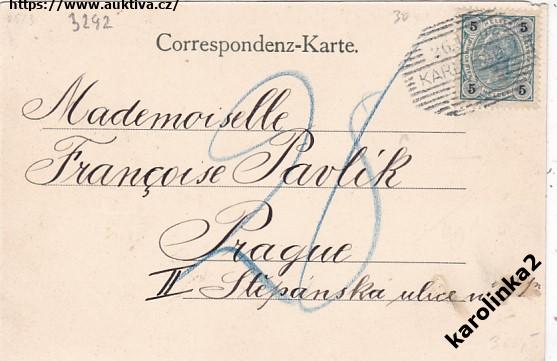 https://www.auktiva.cz/
3292
30
Correspondenz-Karte.
5 5
5 5
Mademoiselle
Françoise Pavlík
Prague
II Štěpánská ulice
28
karolinka2